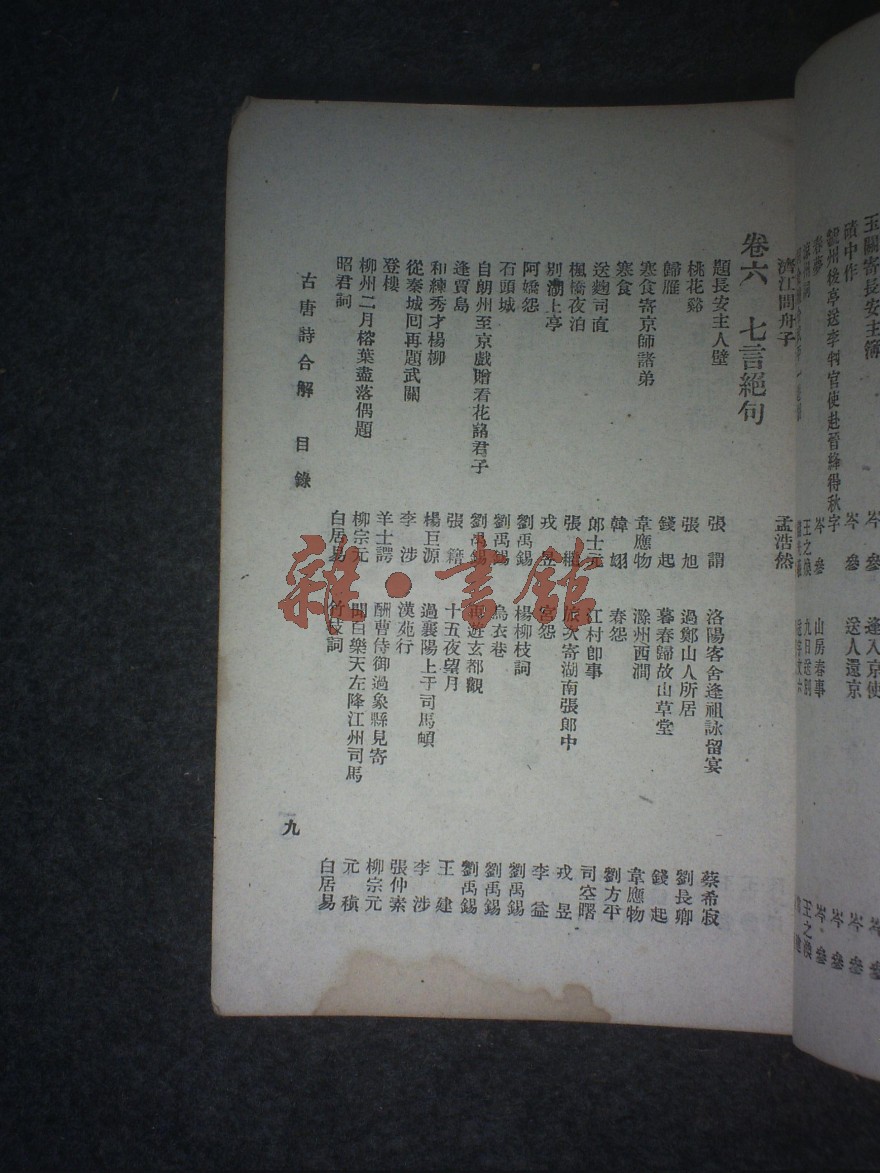 玉關寄長安主簿 岑參 逢入京使 岑參
磧中作 岑參 送人還京 岑參
虢州後亭送李判官使赴晉絳得秋字 岑參
春夢 岑參 山房春事 岑參
王之渙 九日送別 王之渙
濟江問舟子 孟浩然
卷六 七言絕句
題長安主人壁 張謂 洛陽客舍逢祖詠留宴 蔡希寂
桃花谿 張旭 過鄭山人所居 劉長卿
歸雁 錢起 暮春歸故山草堂 錢起
寒食寄京師諸弟 韋應物 滁州西澗 韋應物
寒食 韓翃 春怨 劉方平
送麴司直 郎士元 江村卽事 司空曙
楓橋夜泊 張繼 旅次寄湖南張郎中 戎昱
別湖上亭 戎昱 宮怨 李益
阿嬌怨 劉禹錫 楊柳枝詞 劉禹錫
石頭城 劉禹錫 烏衣巷 劉禹錫
自朗州至京戲贈看花諸君子 劉禹錫 再遊玄都觀 劉禹錫
逢賈島 張籍 十五夜望月 王建
和練秀才楊柳 楊巨源 過襄陽上于司馬頔 李涉
從秦城回再題武關 李涉 漢苑行 張仲素
登樓 羊士諤 酬曹侍御過象縣見寄 柳宗元
柳州二月榕葉盡落偶題 柳宗元 聞白樂天左降江州司馬 元稹
昭君詞 白居易 竹枝詞 白居易
古唐詩合解 目錄
九
雜·書館